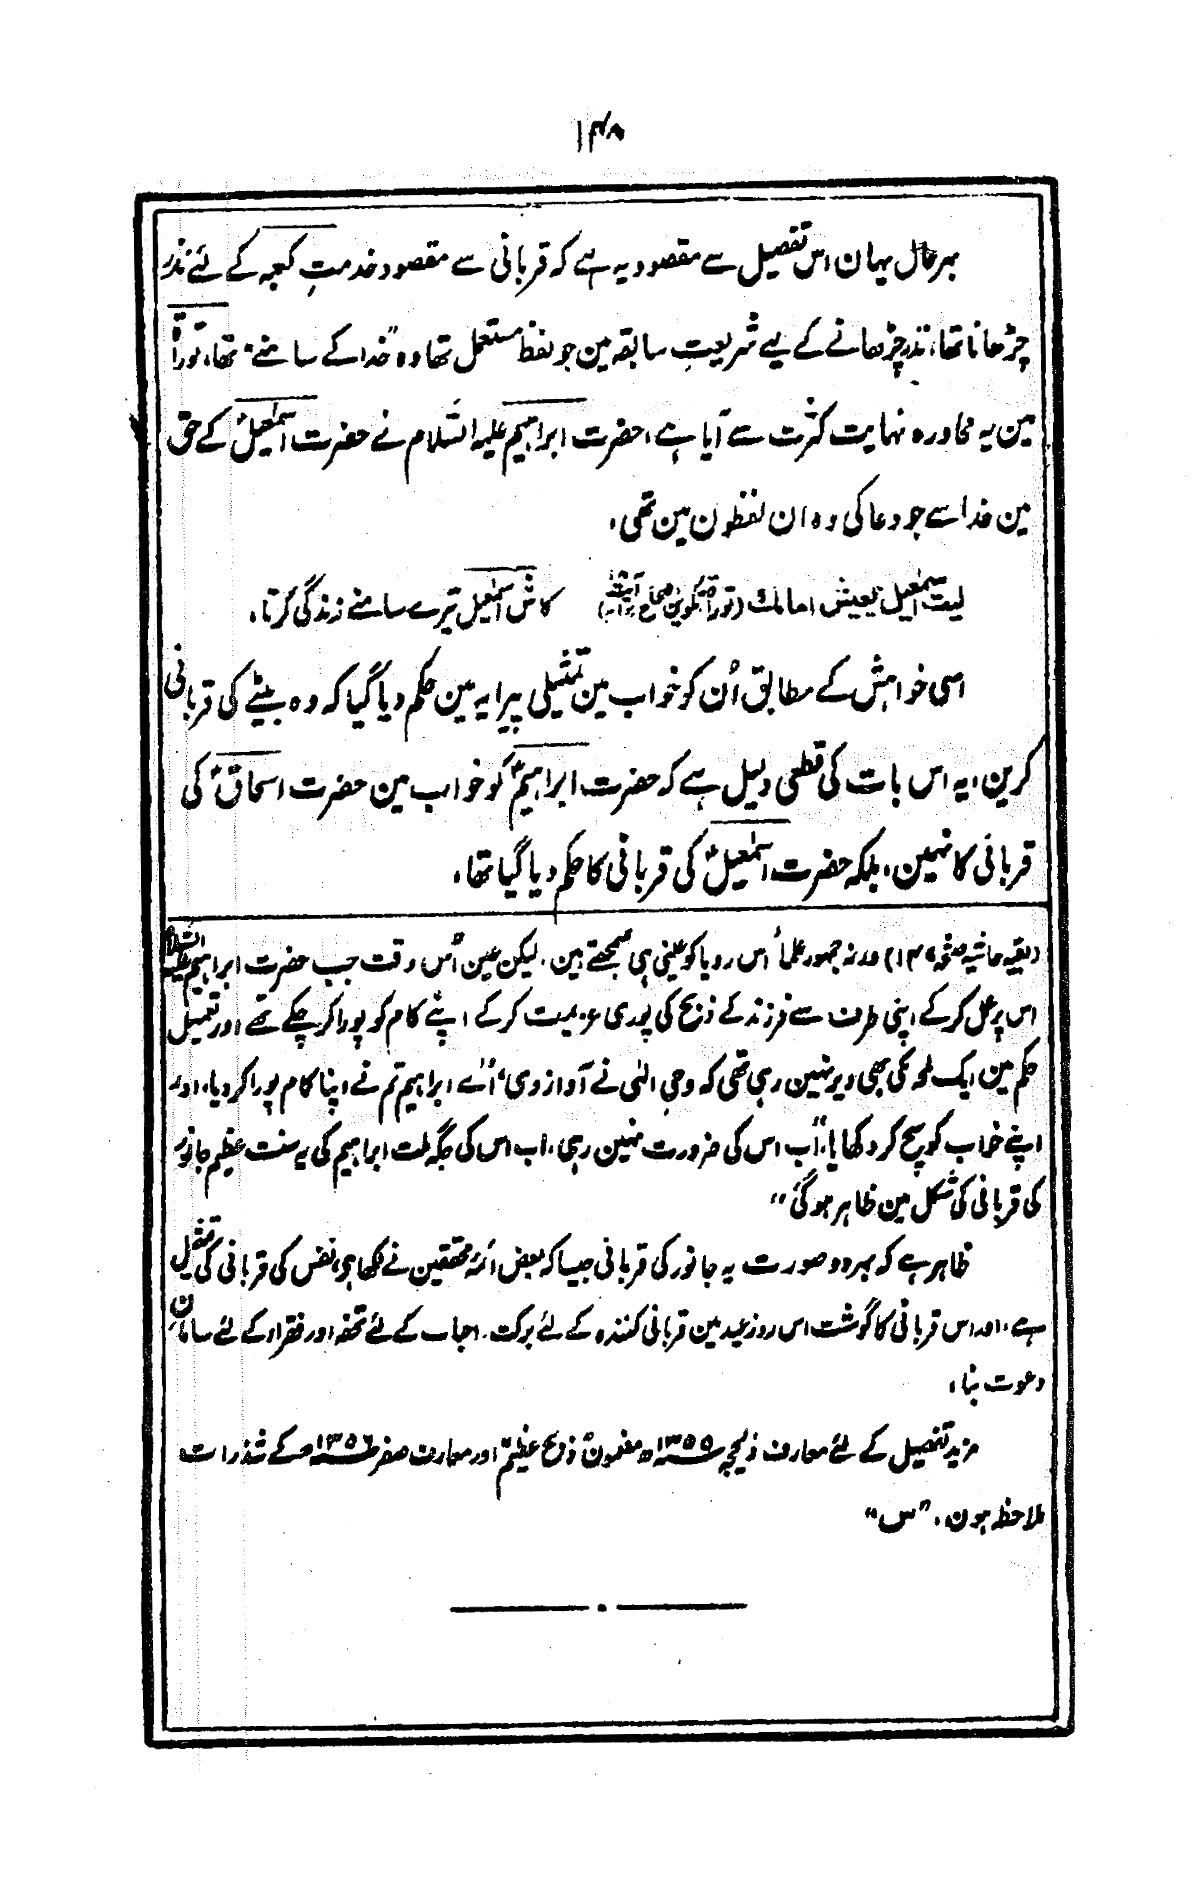 ۱۴۸
بہرحال یہان اس تفصیل سے مقصود یہ ہے کہ قربانی سے مقصود خدمتِ کعبہ کے لئے نذر
چڑھانا تھا، نذر چڑھانے کے لیے شریعتِ سابقہ مین جو لفظ مستعمل تھا وہ "خدا کے سامنے" تھا، توراۃ
مین یہ محاورہ نہایت کثرت سے آیا ہے، حضرت ابراہیم علیہ السّلام نے حضرت اسمٰعیلؑ کے حق
مین خدا سے جو دعا کی وہ ان لفظون مین تھی،
لیت اسمٰعیل یعیش امامك (توراۃ تکوین اصحاح آیت) کاش اسمٰعیل تیرے سامنے زندگی کرتا،
اسی خواہش کے مطابق اُن کو خواب مین تمثیلی پیرایہ مین حکم دیا گیا کہ وہ بیٹے کی قربانی
کرین، یہ اس بات کی قطعی دلیل ہے کہ حضرت ابراہیمؑ کو خواب مین حضرت اسحاقؑ کی
قربانی کا نہین، بلکہ حضرت اسمٰعیلؑ کی قربانی کا حکم دیا گیا تھا،
(بقیہ حاشیہ صفحہ ۱۴۷) ورنہ جمہور علماء اس رویا کو عینی ہی سمجھتے ہین، لیکن عین اُس وقت جب حضرت ابراہیم علیہ السّلام
اس پر عمل کر کے اپنی طرف سے فرزند کے ذبح کی پوری عزیمت کر کے اپنے کام کو پورا کر چکے تھے اور تعمیل
حکم مین ایک لمحہ کی بھی دیر نہین رہی تھی کہ وحی الٰہی نے آواز دی، "اے ابراہیم تم نے اپنا کام پورا کر دیا، اور
اپنے خواب کو سچ کر دکھایا"، اب اس کی ضرورت نہین رہی، اب اس کی جگہ ملت ابراہیم کی یہ سنت عظیم جانور
کی قربانی کی شکل مین ظاہر ہو گئی"
ظاہر ہے کہ بہر دو صورت یہ جانور کی قربانی جیسا کہ بعض ائمہ محققین نے لکھا ہی، نفس کی قربانی کی تمثیل
ہے، اور اس قربانی کا گوشت اس روز عید مین قربانی کنندہ کے لئے برکت، احباب کے لئے تحفہ اور فقراء کے لئے سامانِ
دعوت بنا،
مزید تفصیل کے لئے معارف ذیلحجہ ۱۳۵۵ھ مضمون "ذبحِ عظیم" اور معارف صفر ۱۳۵۶ھ کے شذرات
ملاحظہ ہون، "س"